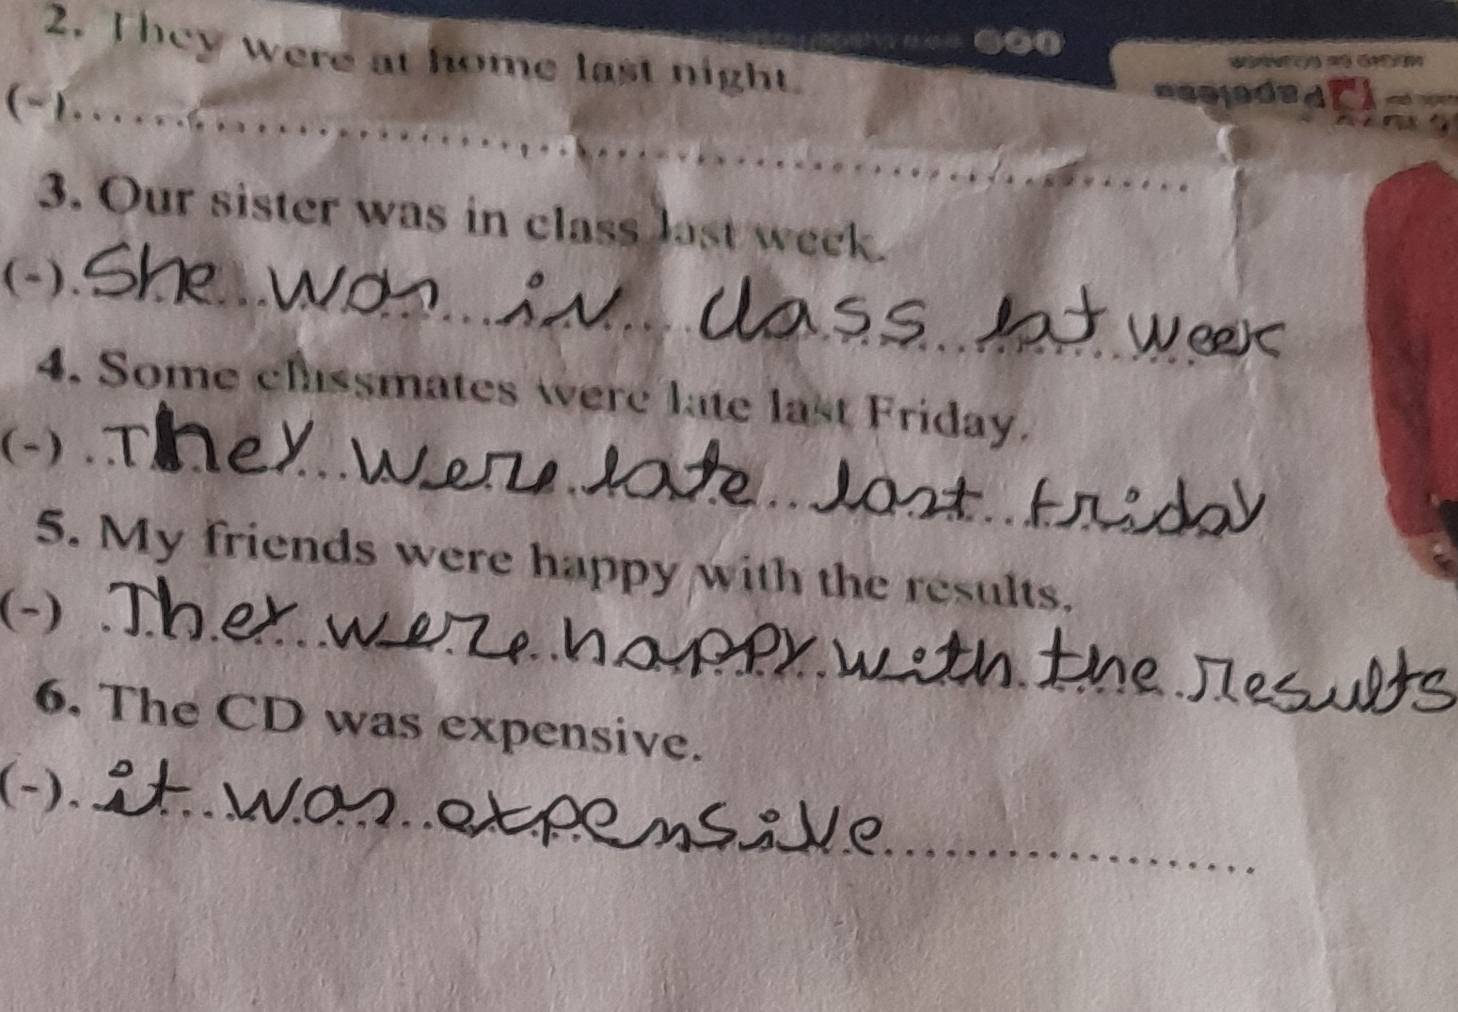 2. They were at home last night.
(-)
3. Our sister was in class last week.
(-) She was in class last week
4. Some classmates were late last Friday.
(-) They were late last friday
5. My friends were happy with the results.
(-) They were happy with the results
6. The CD was expensive.
(-) it was expensive
Papelesa